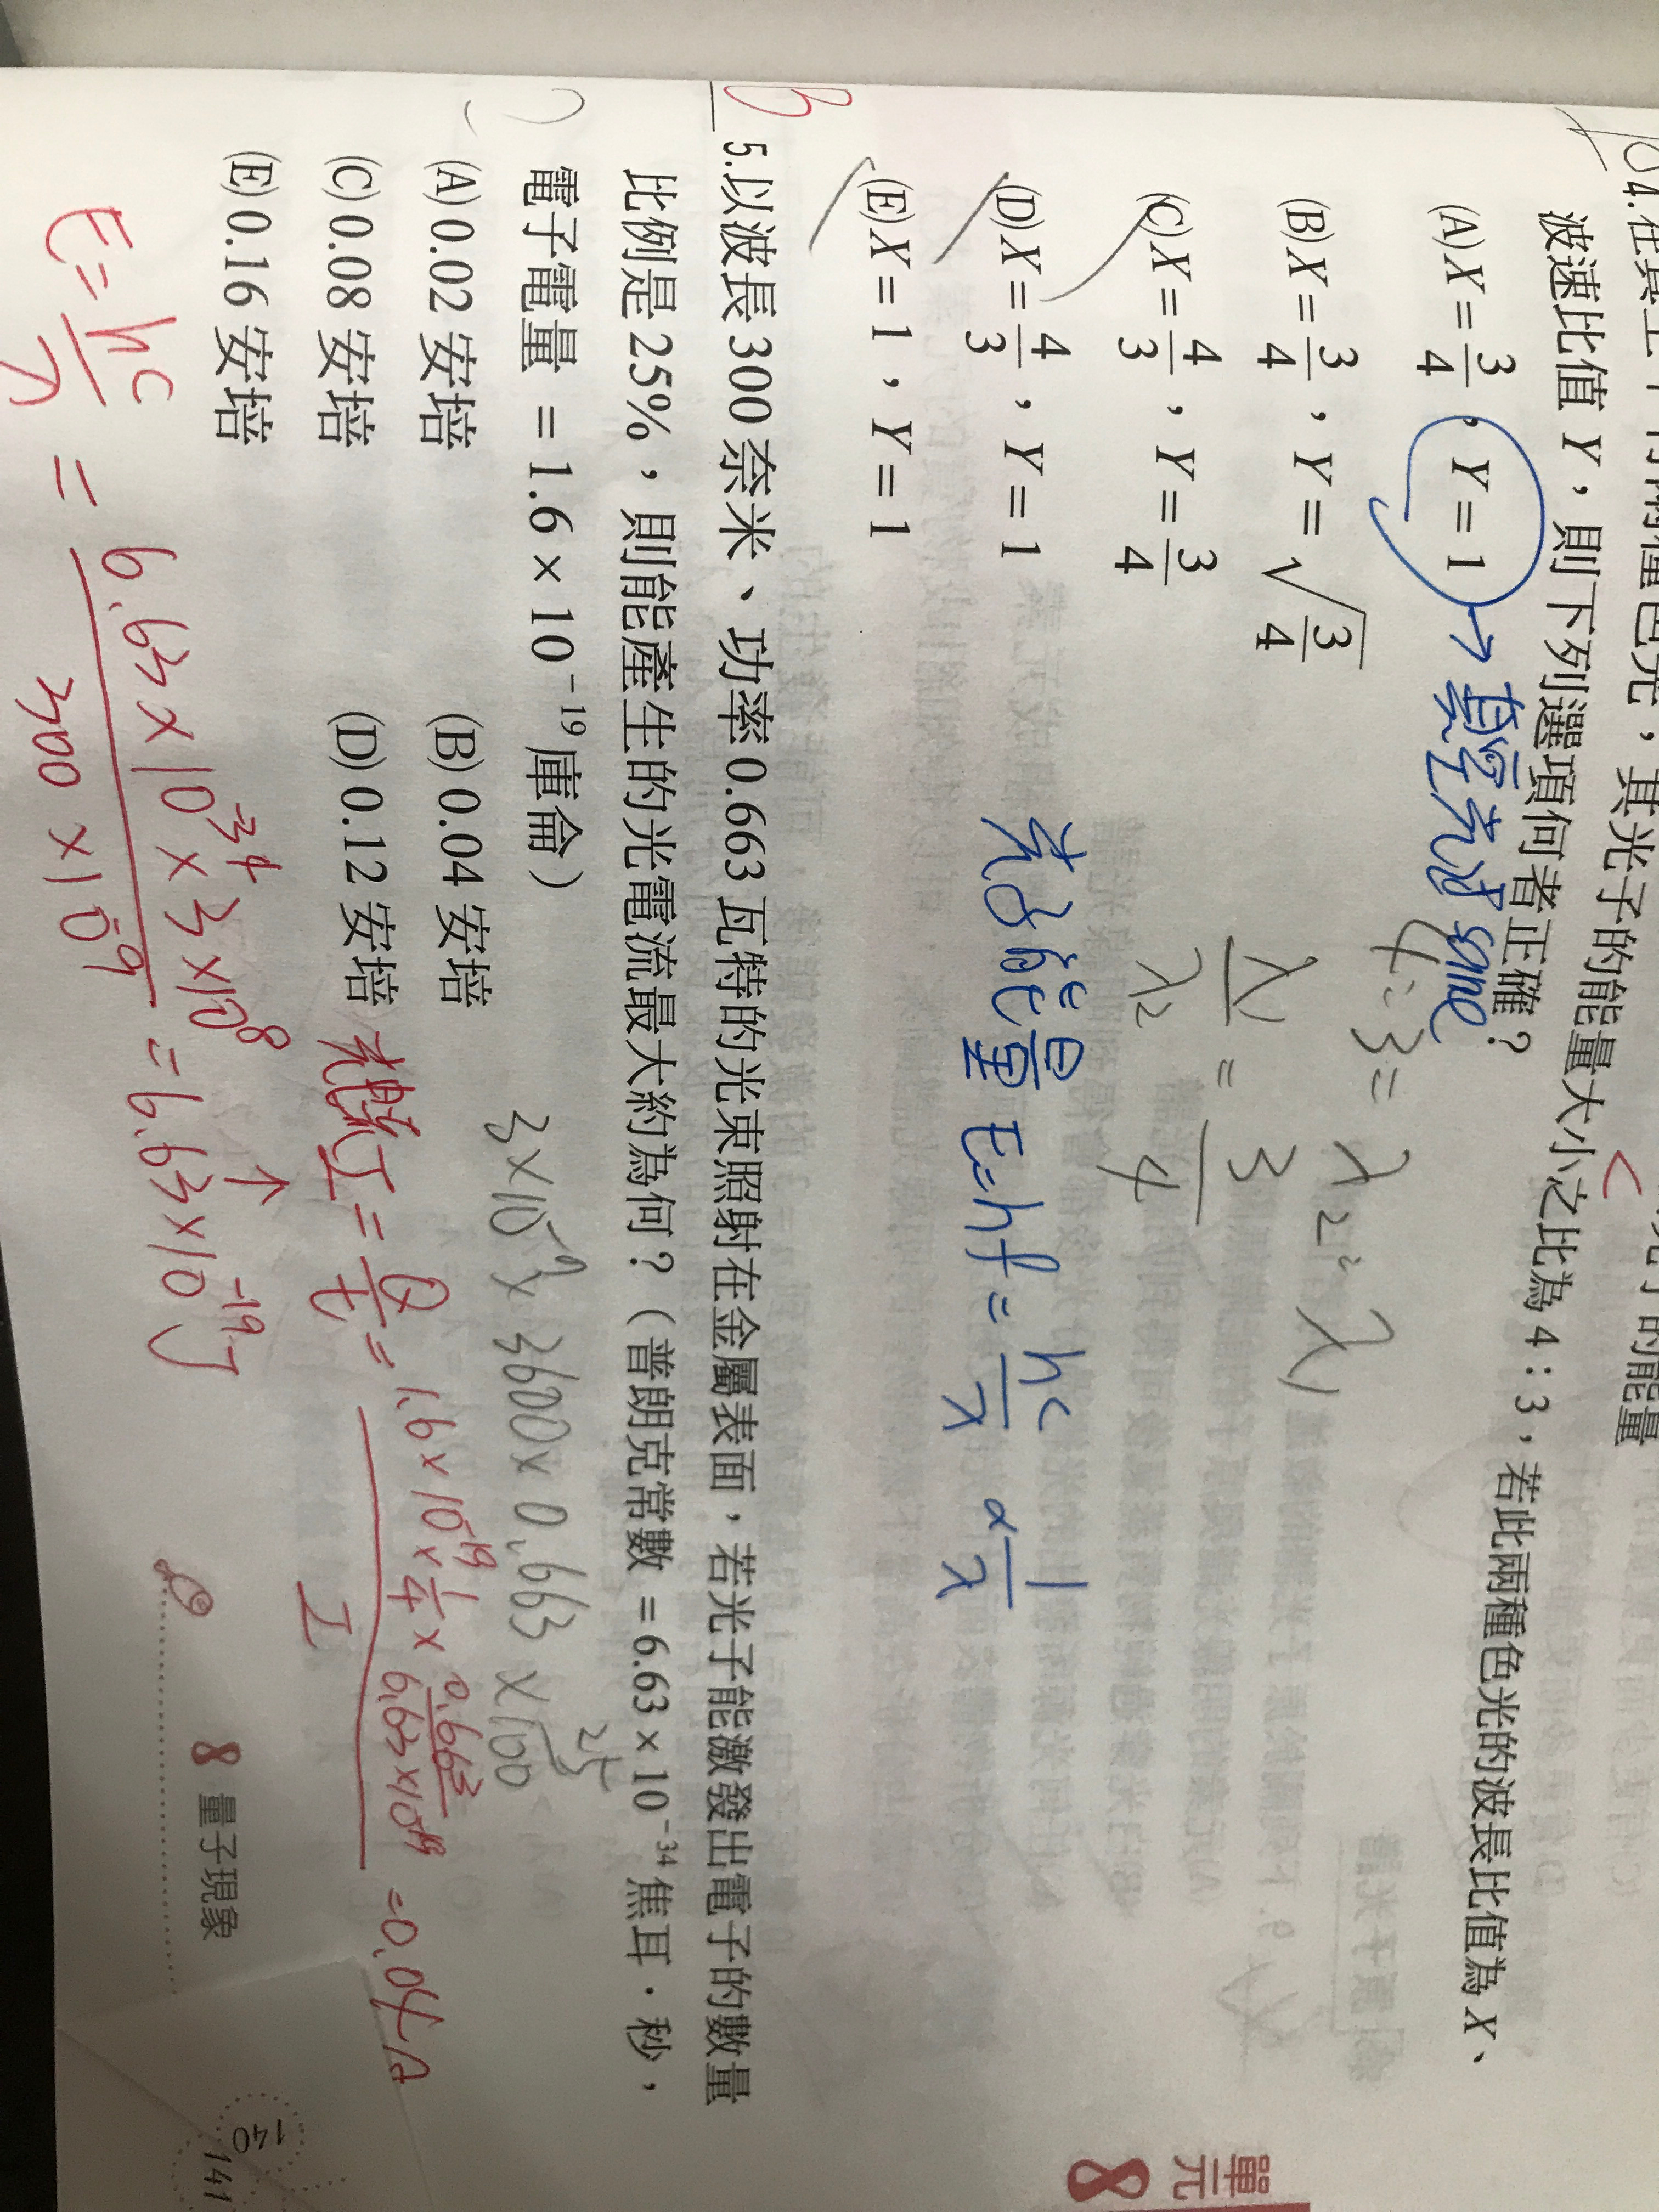 光子的能量
4.在真空中有兩種色光，其光子的能量大小之比為 4：3，若此兩種色光的波長比值為 X、
波速比值 Y，則下列選項何者正確？
(A) X = 3/4，Y = 1 → 真空光速same
(B) X = 3/4，Y = √(3/4)
(C) X = 4/3，Y = 3/4
(D) X = 4/3，Y = 1
(E) X = 1，Y = 1
4：3 = λ2：λ1
λ1/λ2 = 3/4
光子能量 E=hf = hc/λ ∝ 1/λ
B
5.以波長 300 奈米、功率 0.663 瓦特的光束照射在金屬表面，若光子能激發出電子的數量
比例是 25%，則能產生的光電流最大約為何？（普朗克常數 = 6.63 × 10⁻³⁴ 焦耳・秒，
電子電量 = 1.6 × 10⁻¹⁹ 庫侖）
(A) 0.02 安培 (B) 0.04 安培
(C) 0.08 安培 (D) 0.12 安培
(E) 0.16 安培
3×10⁻⁹× 3600× 0.663 × 25/100
I = Q/t = 1.6 × 10⁻¹⁹ × 1/4 × 0.663/6.63×10⁻¹⁹ / 1 = 0.04A
E = hc/λ = 6.63 × 10⁻³⁴ × 3 × 10⁸ / 300 × 10⁻⁹ = 6.63 × 10⁻¹⁹ J
單元 8
8 量子現象
140
141